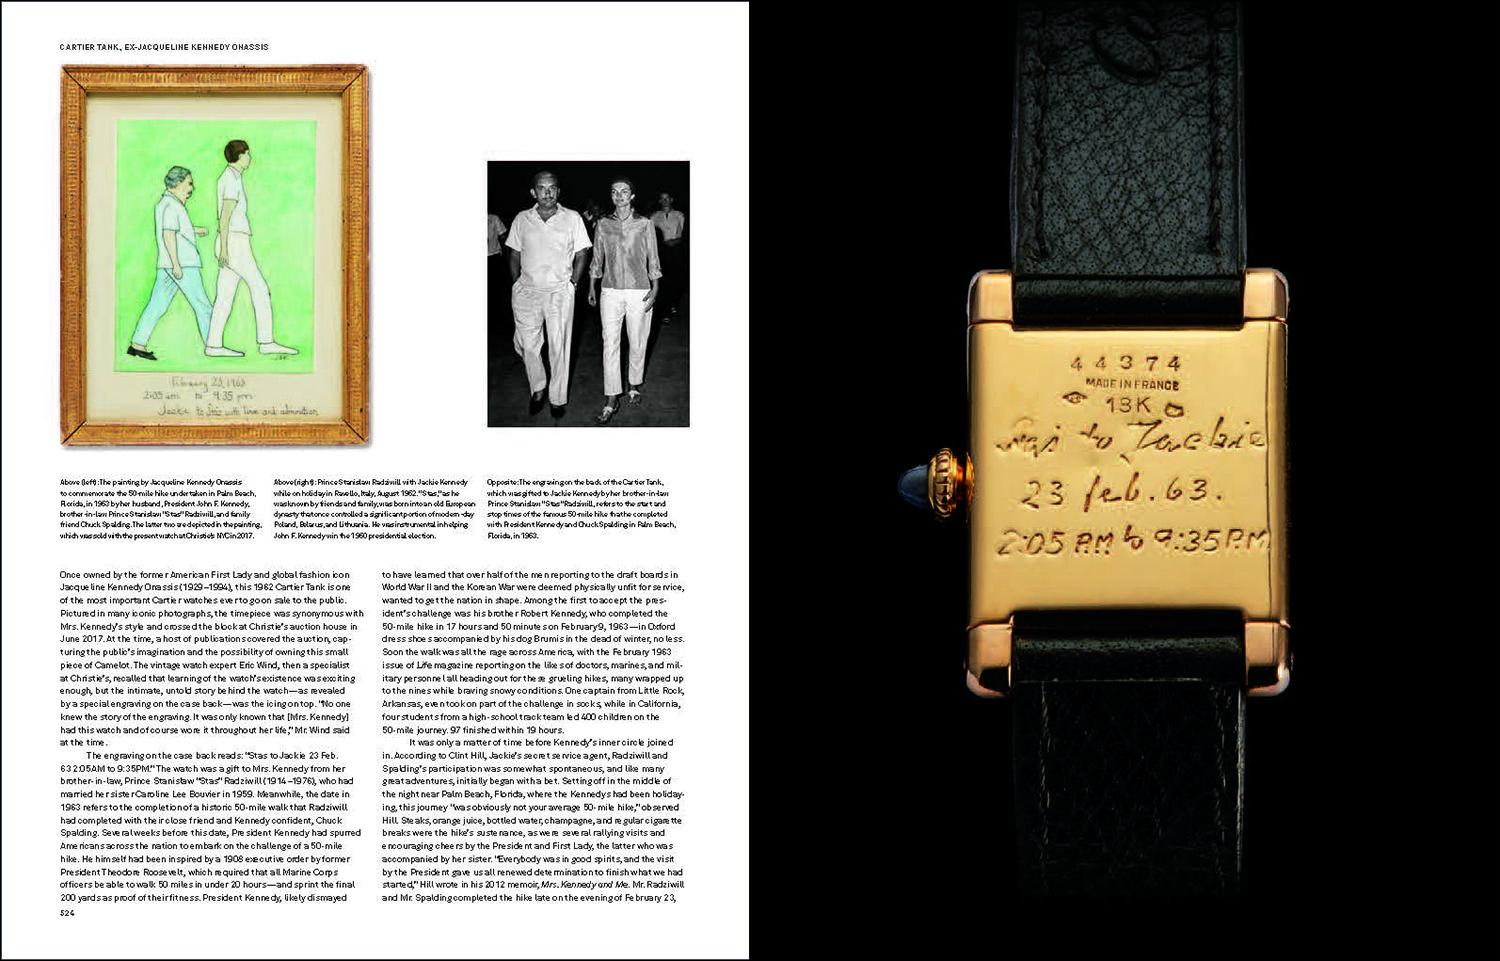 CARTIER TANK, EX-JACQUELINE KENNEDY ONASSIS
February 23, 1963
2:05 am to 9:35 pm
Jackie to Stas with love and admiration
Above (left): The painting by Jacqueline Kennedy Onassis
to commemorate the 50-mile hike undertaken in Palm Beach,
Florida, in 1963 by her husband, President John F. Kennedy,
brother-in-law Prince Stanisław "Stas" Radziwill, and family
friend Chuck Spalding. The latter two are depicted in the painting,
which was sold with the present watch at Christie's NYC in 2017.
Above (right): Prince Stanisław Radziwill with Jackie Kennedy
while on holiday in Ravello, Italy, August 1962. "Stas," as he
was known by friends and family, was born into an old European
dynasty that once controlled a significant portion of modern-day
Poland, Belarus, and Lithuania. He was instrumental in helping
John F. Kennedy win the 1960 presidential election.
Opposite: The engraving on the back of the Cartier Tank,
which was gifted to Jackie Kennedy by her brother-in-law
Prince Stanisław "Stas" Radziwill, refers to the start and
stop times of the famous 50-mile hike that he completed
with President Kennedy and Chuck Spalding in Palm Beach,
Florida, in 1963.
Once owned by the former American First Lady and global fashion icon
Jacqueline Kennedy Onassis (1929–1994), this 1962 Cartier Tank is one
of the most important Cartier watches ever to go on sale to the public.
Pictured in many iconic photographs, the timepiece was synonymous with
Mrs. Kennedy's style and crossed the block at Christie's auction house in
June 2017. At the time, a host of publications covered the auction, cap-
turing the public's imagination and the possibility of owning this small
piece of Camelot. The vintage watch expert Eric Wind, then a specialist
at Christie's, recalled that learning of the watch's existence was exciting
enough, but the intimate, untold story behind the watch—as revealed
by a special engraving on the case back—was the icing on top. "No one
knew the story of the engraving. It was only known that [Mrs. Kennedy]
had this watch and of course wore it throughout her life," Mr. Wind said
at the time.
The engraving on the case back reads: "Stas to Jackie 23 Feb.
63 2:05AM to 9:35PM." The watch was a gift to Mrs. Kennedy from her
brother-in-law, Prince Stanisław "Stas" Radziwill (1914–1976), who had
married her sister Caroline Lee Bouvier in 1959. Meanwhile, the date in
1963 refers to the completion of a historic 50-mile walk that Radziwill
had completed with their close friend and Kennedy confident, Chuck
Spalding. Several weeks before this date, President Kennedy had spurred
Americans across the nation to embark on the challenge of a 50-mile
hike. He himself had been inspired by a 1908 executive order by former
President Theodore Roosevelt, which required that all Marine Corps
officers be able to walk 50 miles in under 20 hours—and sprint the final
200 yards as proof of their fitness. President Kennedy, likely dismayed
524
to have learned that over half of the men reporting to the draft boards in
World War II and the Korean War were deemed physically unfit for service,
wanted to get the nation in shape. Among the first to accept the pres-
ident's challenge was his brother Robert Kennedy, who completed the
50-mile hike in 17 hours and 50 minutes on February 9, 1963—in Oxford
dress shoes accompanied by his dog Brumis in the dead of winter, no less.
Soon the walk was all the rage across America, with the February 1963
issue of Life magazine reporting on the likes of doctors, marines, and mil-
itary personnel all heading out for these grueling hikes, many wrapped up
to the nines while braving snowy conditions. One captain from Little Rock,
Arkansas, even took on part of the challenge in socks, while in California,
four students from a high-school track team led 400 children on the
50-mile journey. 97 finished within 19 hours.
It was only a matter of time before Kennedy's inner circle joined
in. According to Clint Hill, Jackie's secret service agent, Radziwill and
Spalding's participation was somewhat spontaneous, and like many
great adventures, initially began with a bet. Setting off in the middle of
the night near Palm Beach, Florida, where the Kennedys had been holiday-
ing, this journey "was obviously not your average 50-mile hike," observed
Hill. Steaks, orange juice, bottled water, champagne, and regular cigarette
breaks were the hike's sustenance, as were several rallying visits and
encouraging cheers by the President and First Lady, the latter who was
accompanied by her sister. "Everybody was in good spirits, and the visit
by the President gave us all renewed determination to finish what we had
started," Hill wrote in his 2012 memoir, Mrs. Kennedy and Me. Mr. Radziwill
and Mr. Spalding completed the hike late on the evening of February 23,
44374
MADE IN FRANCE
18K
to Jackie
23 feb. 63.
2:05 AM to 9:35 PM